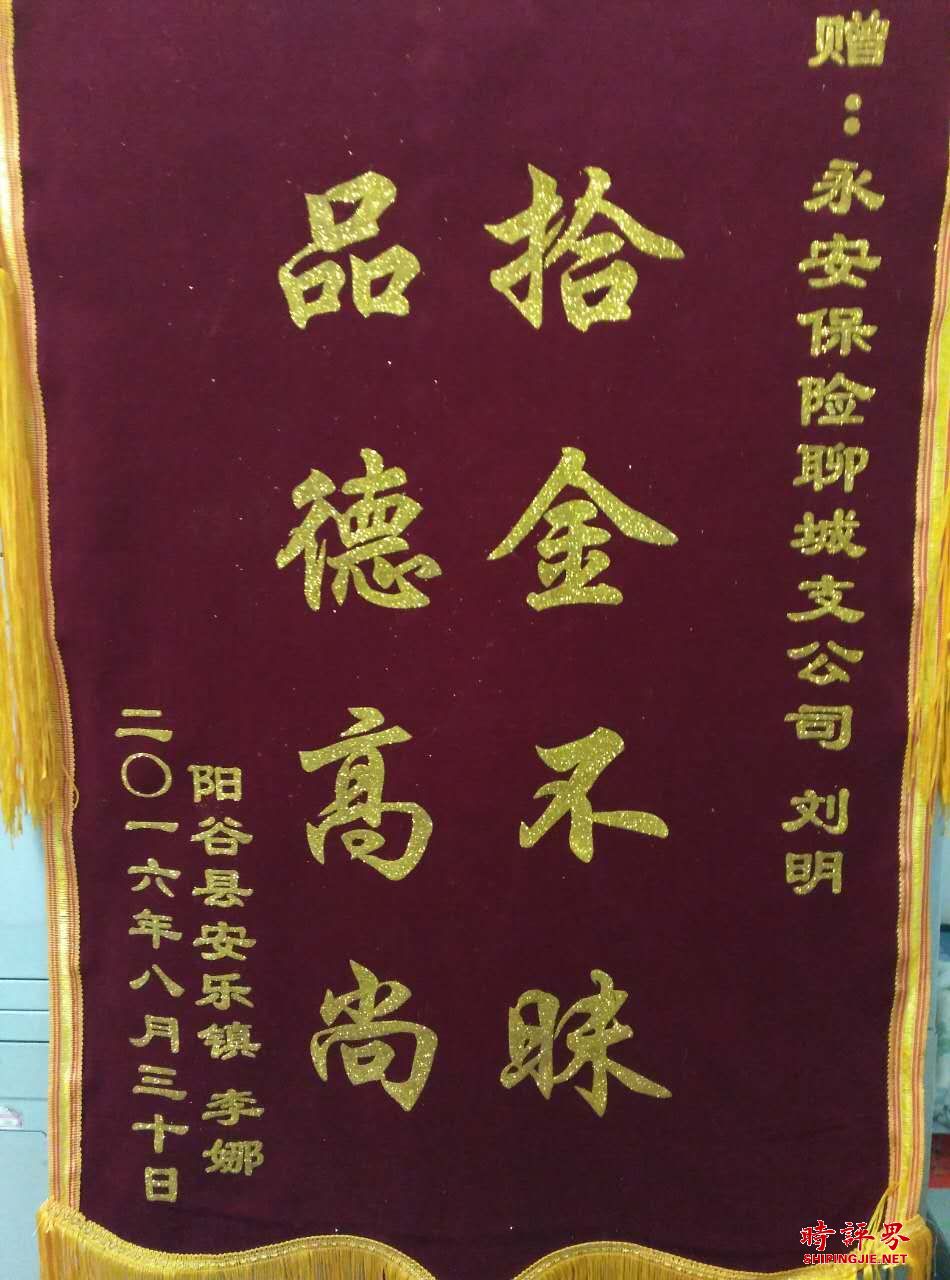 赠：永安保险聊城支公司 刘明
拾金不昧
品德高尚
阳谷县安乐镇 李娜
二〇一六年八月三十日
時評界
SHIPINGJIE.NET